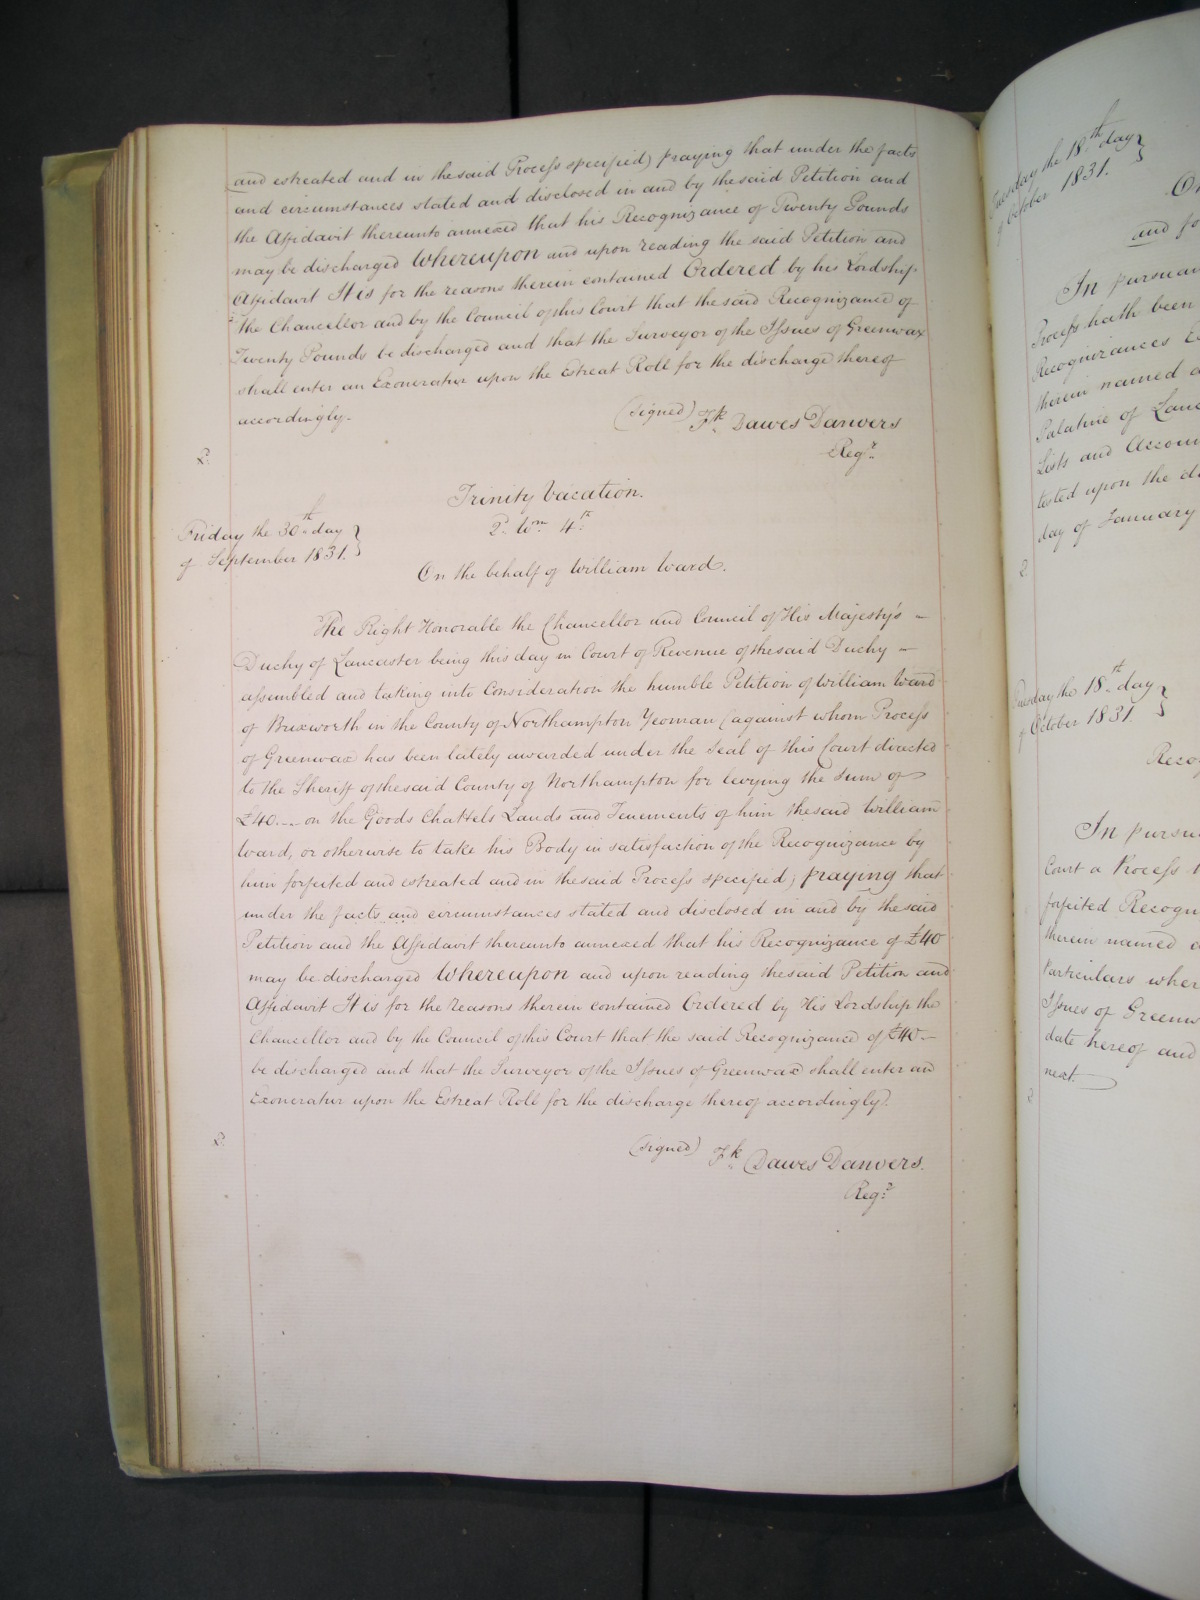 and estreated and in the said Process specified) praying that under the facts
and circumstances stated and disclosed in and by the said Petition and
the Affidavit thereunto annexed that his Recognizance of Twenty Pounds
may be discharged Whereupon and upon reading the said Petition and
Affidavit It is for the reasons therein contained Ordered by his Lordship
the Chancellor and by the Council of this Court that the said Recognizance of
Twenty Pounds be discharged and that the Surveyor of the Issues of Greenwax
shall enter an Exoneratur upon the Estreat Roll for the discharge thereof
accordingly.
(signed) Fk. Dawes Danvers
Regr.
Trinity Vacation.
2. Wm. 4th.
Friday the 30th day
of September 1831.
On the behalf of William Ward.
The Right Honorable the Chancellor and Council of His Majesty's –
Duchy of Lancaster being this day in Court of Revenue of the said Duchy –
assembled and taking into Consideration the humble Petition of William Ward
of Brixworth in the County of Northampton Yeoman (against whom Process
of Greenwax has been lately awarded under the Seal of this Court directed
to the Sheriff of the said County of Northampton for levying the Sum of
£40.– on the Goods Chattels Lands and Tenements of him the said William
Ward, or otherwise to take his Body in satisfaction of the Recognizance by
him forfeited and estreated and in the said Process specified) praying that
under the facts and circumstances stated and disclosed in and by the said
Petition and the Affidavit thereunto annexed that his Recognizance of £40
may be discharged Whereupon and upon reading the said Petition and
Affidavit It is for the reasons therein contained Ordered by His Lordship the
Chancellor and by the Council of this Court that the said Recognizance of £40 –
be discharged and that the Surveyor of the Issues of Greenwax shall enter an
Exoneratur upon the Estreat Roll for the discharge thereof accordingly.
(signed) Fk. Dawes Danvers.
Regr.
Tuesday the 18th day
of October 1831.
On
and fo
In pursuan
Process hath been
Recognizances E
therein named a
Palatine of Lanc
Lists and Accoun
tested upon the d
day of January
2
Tuesday the 18th day
of October 1831.
Recog
In pursu
Court a Process
forfeited Recogn
therein named
Particulars wher
Issues of Greenw
date hereof and
next.